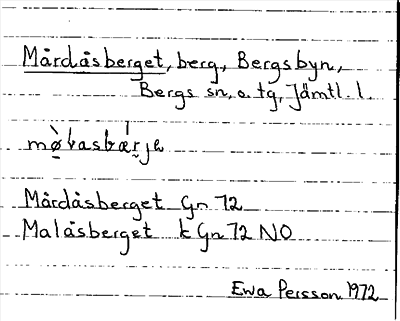 Mårdåsberget, berg, Bergsbyn,
Bergs sn. o. tg, Jämtl. l.
Mårdåsberget Gn 72
Malåsberget k Gn 72 NO
Ewa Persson 1972